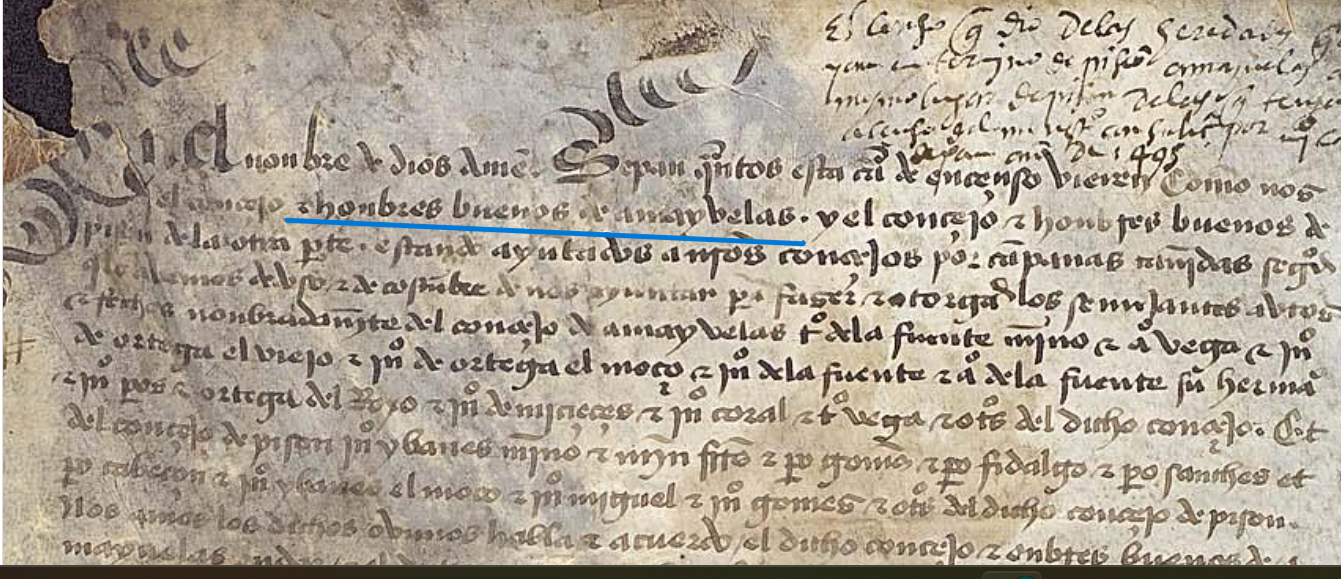 El censo q dio delas heredades q
termino de pison amayuelas
mesmo lugar de pison delas q tengo
de 1495
nonbre de dios Amen Sepan quantos esta carta de encenso vieren Como nos
el concejo & honbres buenos de amayvelas. y el concejo & honbres buenos de
pison dela otra pte. estando ayuntados a nros concejos por canpanas tanidas segud
q lo avemos de vso & de costunbre de nos ayuntar pa faser & otorgar los semejantes abtos
& fechos nonbradamite del concejo de amayvelas t° dela fuente mino & a° vega & jn°
de ortega el viejo & jn° de ortega el moço & jn° dela fuente & a° dela fuente su herma
& jn° pos & ortega del Royo & jn° de micieçes & jn° coral & t° vega & ots del dicho concejo. Et
del concejo de pison jn° ybanes mino & min fito & po gomes & po fidalgo & po sanches et
po cabeçon & jn° ybanes el moço & jn° miguel & jn° gomes & ots del dicho concejo de pison.
Nos amos los dichos ovimos habla & acuerdo el dicho concejo & onbres buenos de a
mayuelas